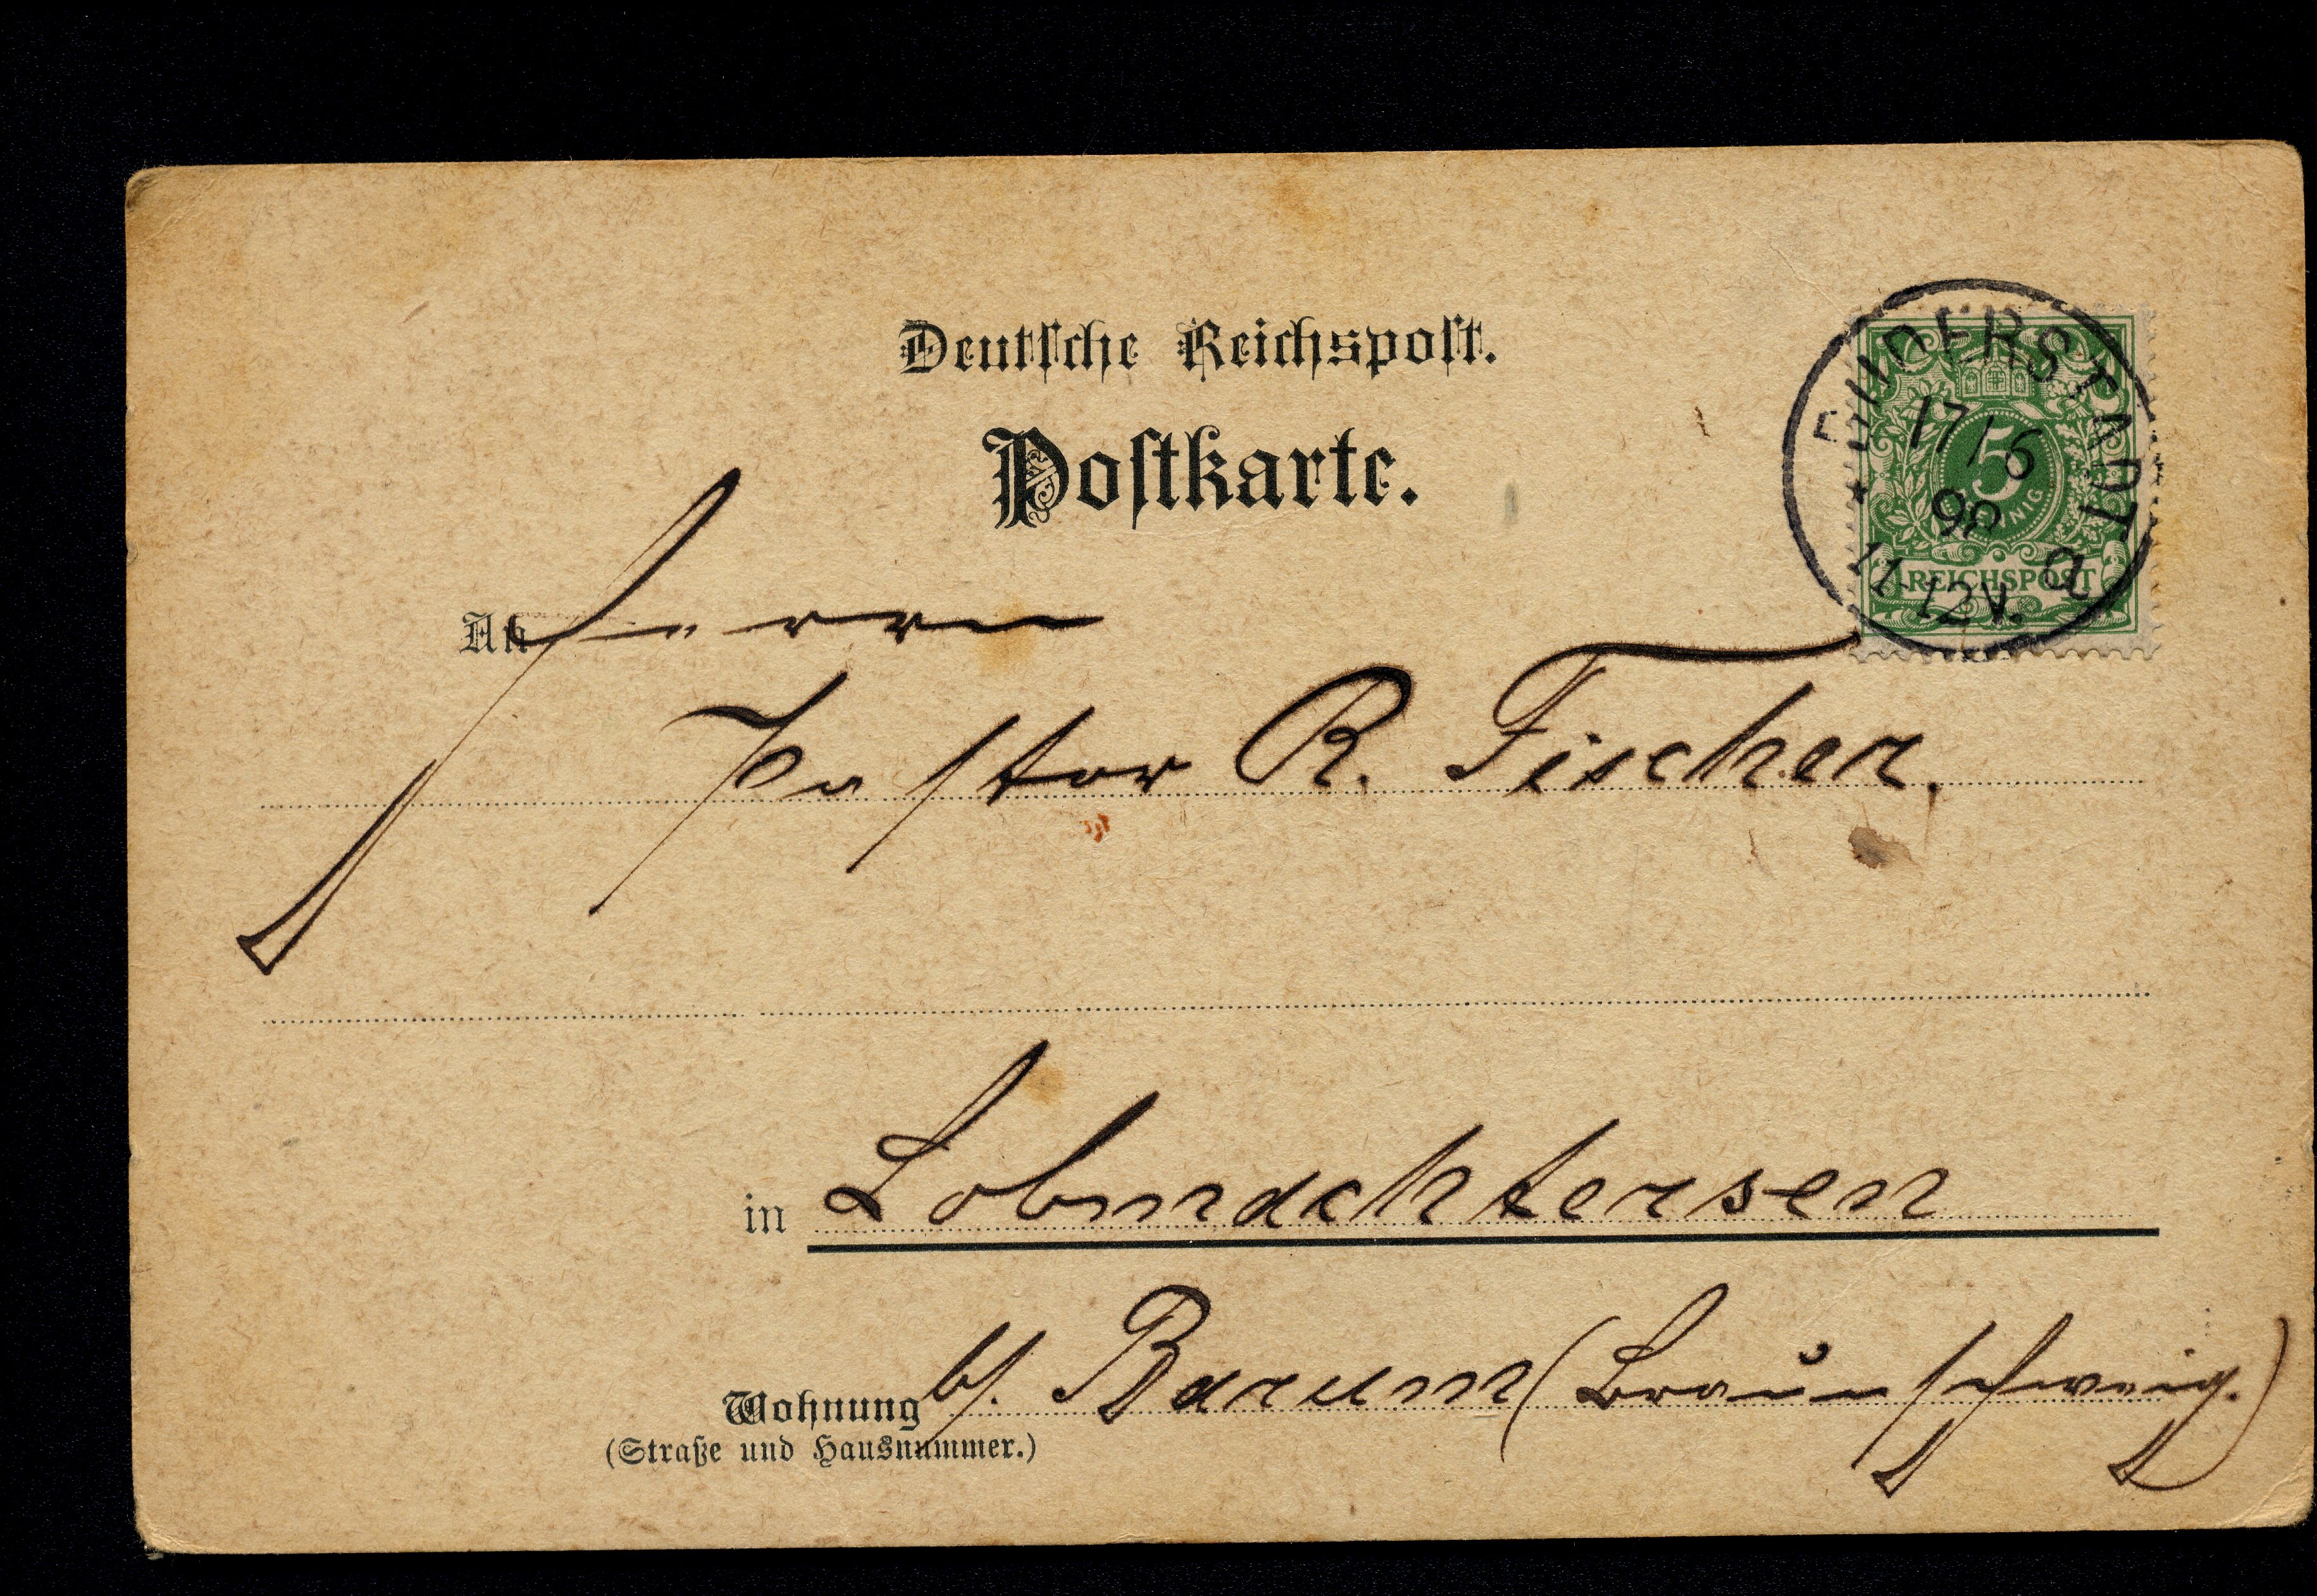 Deutsche Reichspost.
Postkarte.
DUDERSTADT
17/6
98
11-12V.
5
PFENNIG
REICHSPOST
An Herrn
Pastor R. Fischer.
in Lobmachtersen
Wohnung b/. Barum (Braunschweig.)
(Straße und Hausnummer.)